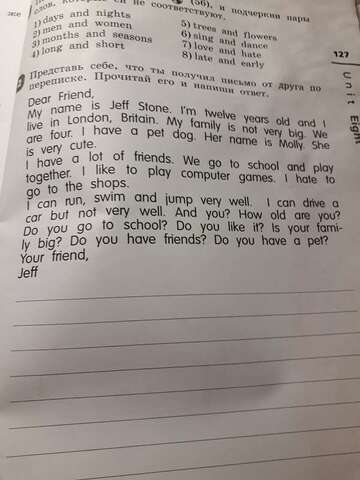 (56), и подчеркни пары
слов, которые ей не соответствуют.
1) days and nights
2) men and women
3) months and seasons
4) long and short
5) trees and flowers
6) sing and dance
7) love and hate
8) late and early
127
Unit Eight
Представь себе, что ты получил письмо от друга по
переписке. Прочитай его и напиши ответ.
Dear Friend,
My name is Jeff Stone. I'm twelve years old and I
live in London, Britain. My family is not very big. We
are four. I have a pet dog. Her name is Molly. She
is very cute.
I have a lot of friends. We go to school and play
together. I like to play computer games. I hate to
go to the shops.
I can run, swim and jump very well. I can drive a
car but not very well. And you? How old are you?
Do you go to school? Do you like it? Is your fami-
ly big? Do you have friends? Do you have a pet?
Your friend,
Jeff